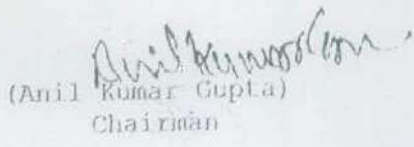 Anil Kumar Gupta
(Anil Kumar Gupta)
Chairman